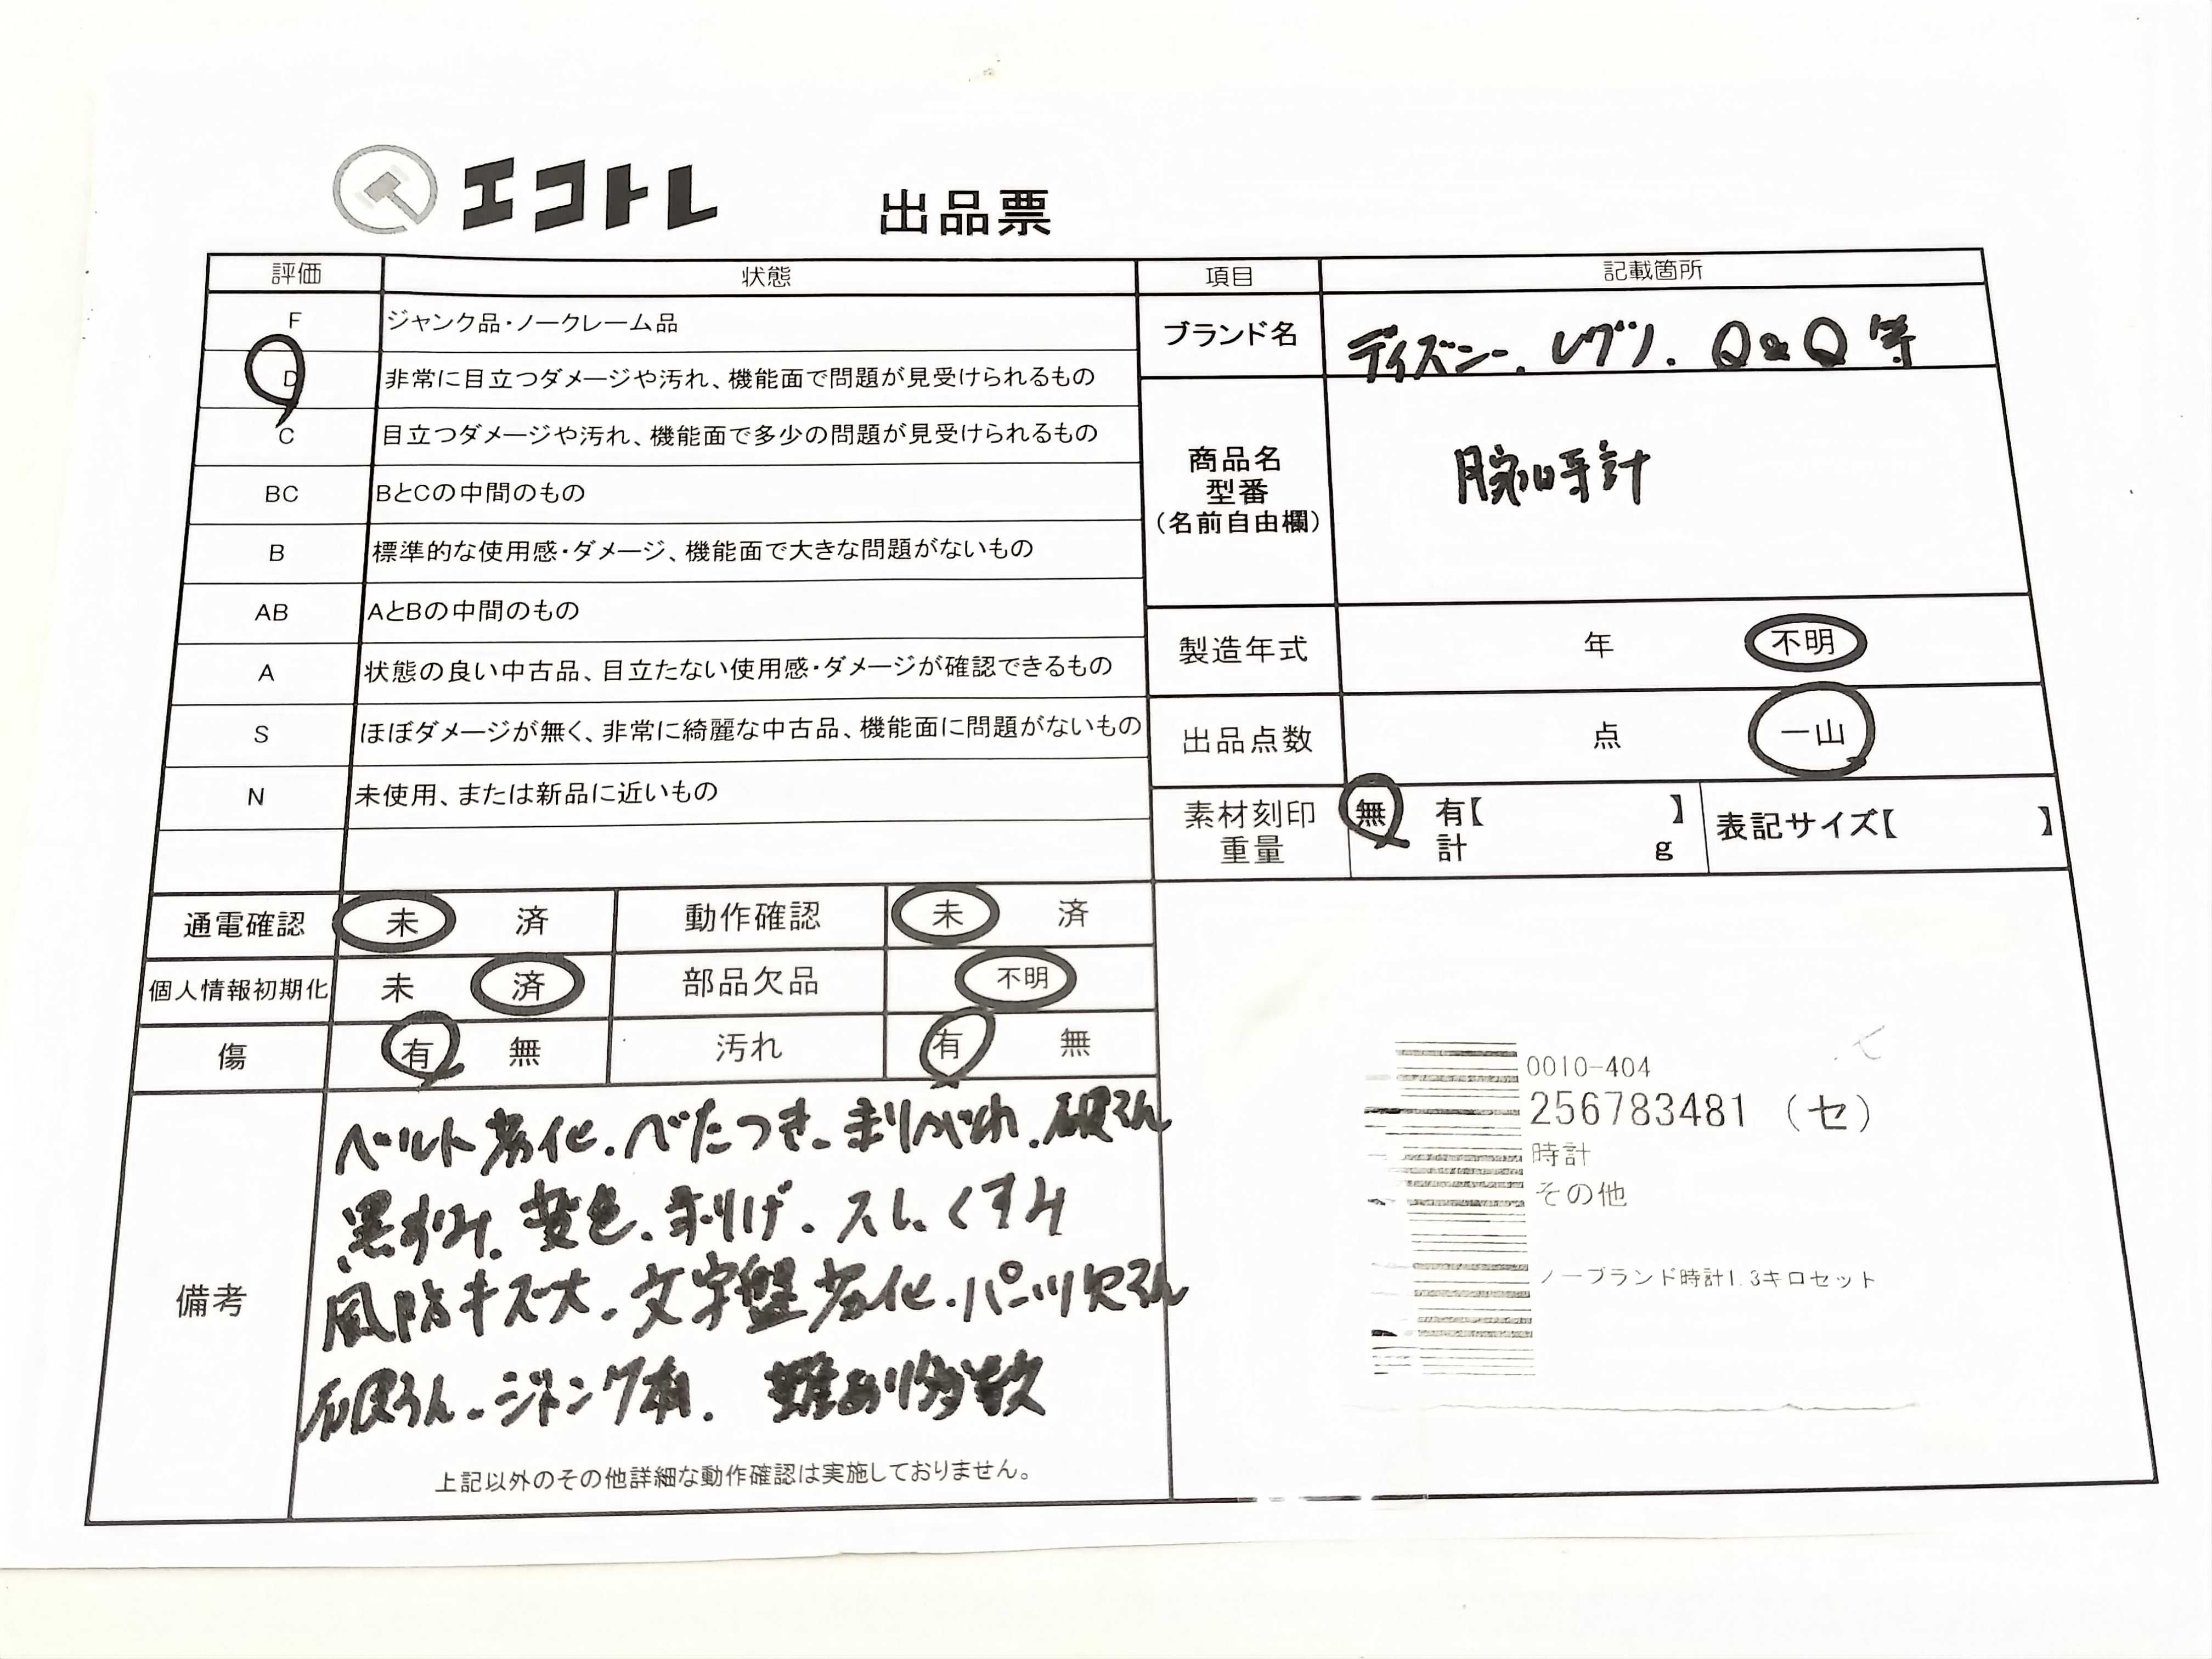 エコトレ 出品票
評価 状態 項目 記載箇所
F ジャンク品・ノークレーム品
D 非常に目立つダメージや汚れ、機能面で問題が見受けられるもの
C 目立つダメージや汚れ、機能面で多少の問題が見受けられるもの
BC BとCの中間のもの
B 標準的な使用感・ダメージ、機能面で大きな問題がないもの
AB AとBの中間のもの
A 状態の良い中古品、目立たない使用感・ダメージが確認できるもの
S ほぼダメージが無く、非常に綺麗な中古品、機能面に問題がないもの
N 未使用、または新品に近いもの
ブランド名 ディズニー. レグノ. Q&Q 等
商品名
型番
（名前自由欄）
腕時計
製造年式 年 不明
出品点数 点 一山
素材刻印 無 有【 】 表記サイズ【 】
重量 計 g
通電確認 未 済 動作確認 未 済
個人情報初期化 未 済 部品欠品 不明
傷 有 無 汚れ 有 無
備考
ベルト劣化.べたつき.剥がれ.破そん
黒ずみ.変色.剥げ.スレ.くすみ
風防キズ大.文字盤劣化.パーツ欠そん
破そん.ジャンク有. 難あり多数
上記以外のその他詳細な動作確認は実施しておりません。
0010-404
256783481 （セ）
時計
その他
ノーブランド時計1.3キロセット